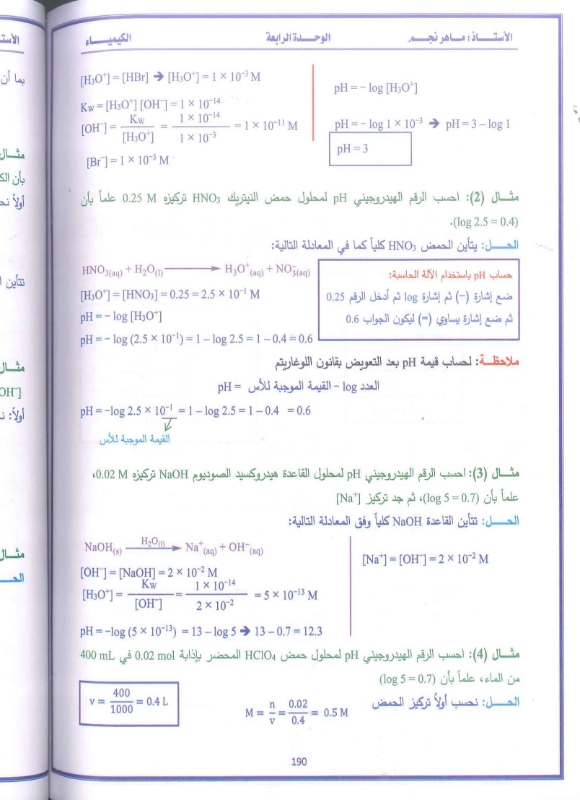 الأستــاذ: مـاهر نجـم    الوحـدة الرابعة    الكيميــاء
[H₃O⁺] = [HBr] ➔ [H₃O⁺] = 1 × 10⁻³ M
Kw = [H₃O⁺] [OH⁻] = 1 × 10⁻¹⁴
[OH⁻] = Kw / [H₃O⁺] = 1 × 10⁻¹⁴ / 1 × 10⁻³ = 1 × 10⁻¹¹ M
[Br⁻] = 1 × 10⁻³ M
pH = − log [H₃O⁺]
pH = − log 1 × 10⁻³ ➔ pH = 3 – log 1
pH = 3
مثــال (2): احسب الرقم الهيدروجيني pH لمحلول حمض النيتريك HNO₃ تركيزه 0.25 M علماً بأن
(log 2.5 = 0.4).
الحــل: يتأين الحمض HNO₃ كلياً كما في المعادلة التالية:
HNO₃(aq) + H₂O(l) ⟶ H₃O⁺(aq) + NO₃⁻(aq)
[H₃O⁺] = [HNO₃] = 0.25 = 2.5 × 10⁻¹ M
pH = − log [H₃O⁺]
pH = − log (2.5 × 10⁻¹) = 1 – log 2.5 = 1 – 0.4 = 0.6
حساب pH باستخدام الآلة الحاسبة:
ضع إشارة (−) ثم إشارة log ثم أدخل الرقم 0.25
ثم ضع إشارة يساوي (=) ليكون الجواب 0.6
ملاحظــة: لحساب قيمة pH بعد التعويض بقانون اللوغاريتم
pH = القيمة الموجبة للأس – log العدد
pH = −log 2.5 × 10⁻¹ = 1 – log 2.5 = 1 – 0.4 = 0.6
القيمة الموجبة للأس
مثــال (3): احسب الرقم الهيدروجيني pH لمحلول القاعدة هيدروكسيد الصوديوم NaOH تركيزه 0.02 M،
علماً بأن (log 5 = 0.7)، ثم جد تركيز [Na⁺]
الحــل: تتأين القاعدة NaOH كلياً وفق المعادلة التالية:
NaOH(s) H₂O(l) ⟶ Na⁺(aq) + OH⁻(aq)
[OH⁻] = [NaOH] = 2 × 10⁻² M
[H₃O⁺] = Kw / [OH⁻] = 1 × 10⁻¹⁴ / 2 × 10⁻² = 5 × 10⁻¹³ M
pH = −log (5 × 10⁻¹³) = 13 – log 5 ➔ 13 – 0.7 = 12.3
[Na⁺] = [OH⁻] = 2 × 10⁻² M
مثــال (4): احسب الرقم الهيدروجيني pH لمحلول حمض HClO₄ المحضر بإذابة 0.02 mol في 400 mL
من الماء، علماً بأن (log 5 = 0.7)
الحــل: نحسب أولاً تركيز الحمض
M = n / v = 0.02 / 0.4 = 0.5 M
v = 400 / 1000 = 0.4 L
190
بما أن
مثــال
بأن الك
مثــال
OH⁻]
مثــال